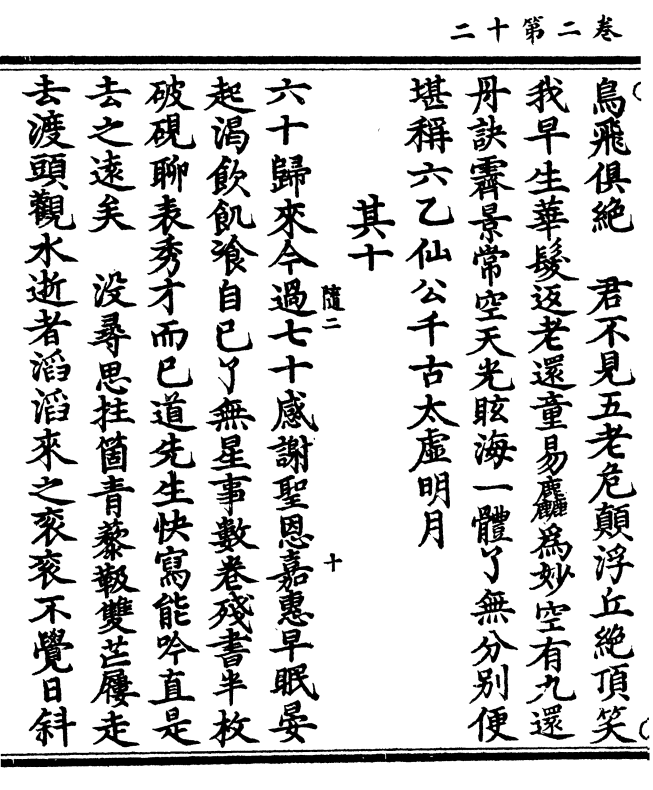 卷二第十二
鳥飛俱絶　君不見五老危顛浮丘絶頂笑
我早生華髮返老還童易麤爲妙空有九還
丹訣霽景常空天光眩海一體了無分别便
堪稱六乙仙公千古太虛明月
其十
隨二
十
六十歸來今過七十感謝聖恩嘉惠早眠晏
起渴飲飢飡自已了無星事數卷殘書半枚
破硯聊表秀才而已道先生快寫能吟直是
去之遠矣　没尋思拄箇青藜靸雙芒屨走
去渡頭觀水逝者滔滔來之衮衮不覺日斜